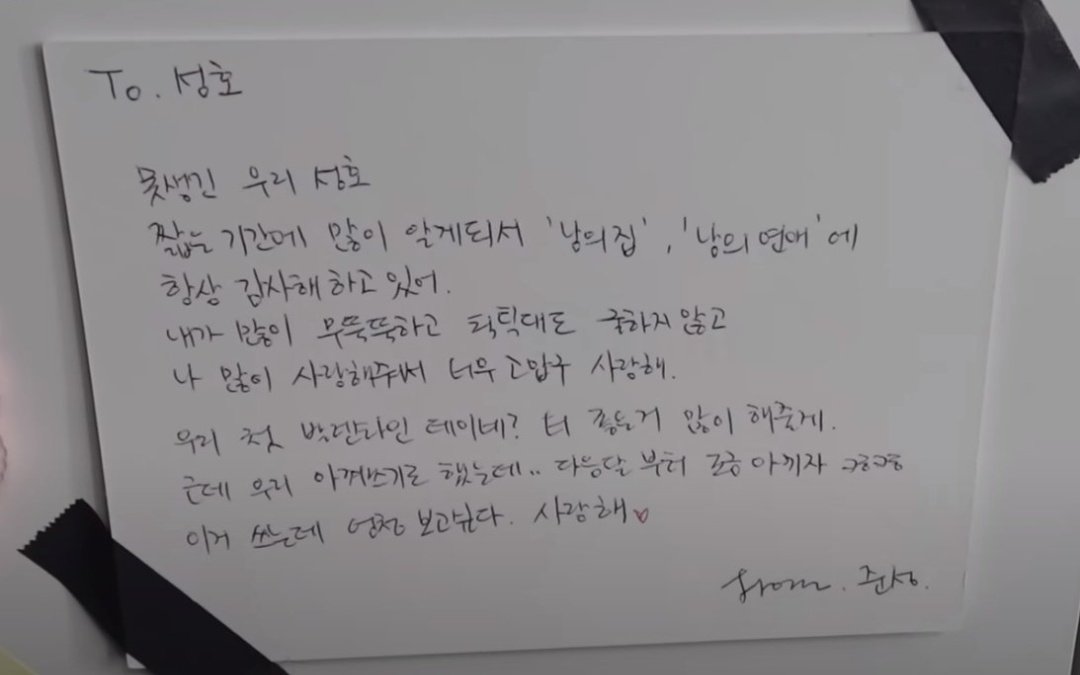 To. 성호
못생긴 우리 성호
짧은 기간에 많이 알게되서 '남의집', '남의연애'에
항상 감사해하고 있어.
내가 많이 무뚝뚝하고 틱틱대도 굴하지 않고
나 많이 사랑해줘서 너무 고맙구 사랑해.
우리 첫 발렌타인 데이네? 더 좋은거 많이 해줄게.
근데 우리 아껴쓰기로 했는데.. 다음달 부터 조금 아끼자
이거 쓰는데 엄청 보고싶다. 사랑해♡
from. 준성.